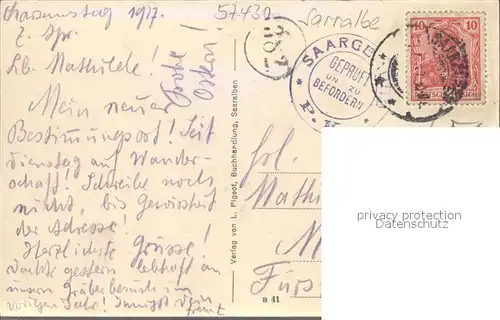 Charsamstag 1917.
57430
Sarralbe
Z. Spr.
Lb. Mathilde!
Frohe
Ostern
Mein neuer
Bestimmungsort! Seit
Dienstag auf Wander-
schaft! Schreibe noch
nicht, bis Gewissheit
der Adresse!
Herzlichste Grüsse!
Dachte gestern lebhaft an
unsern Gräberbesuch im
vorigen Jahr! Innigst Dein
SAARGE
GEPRÜFT
UND ZU
BEFÖRDERN
P. K.
10 10
DEUTSCHES REICH
Verlag von L. Pigeot, Buchhandlung, Saaralben
B 41
Frl.
Math
M
Fürs
privacy protection
Datenschutz